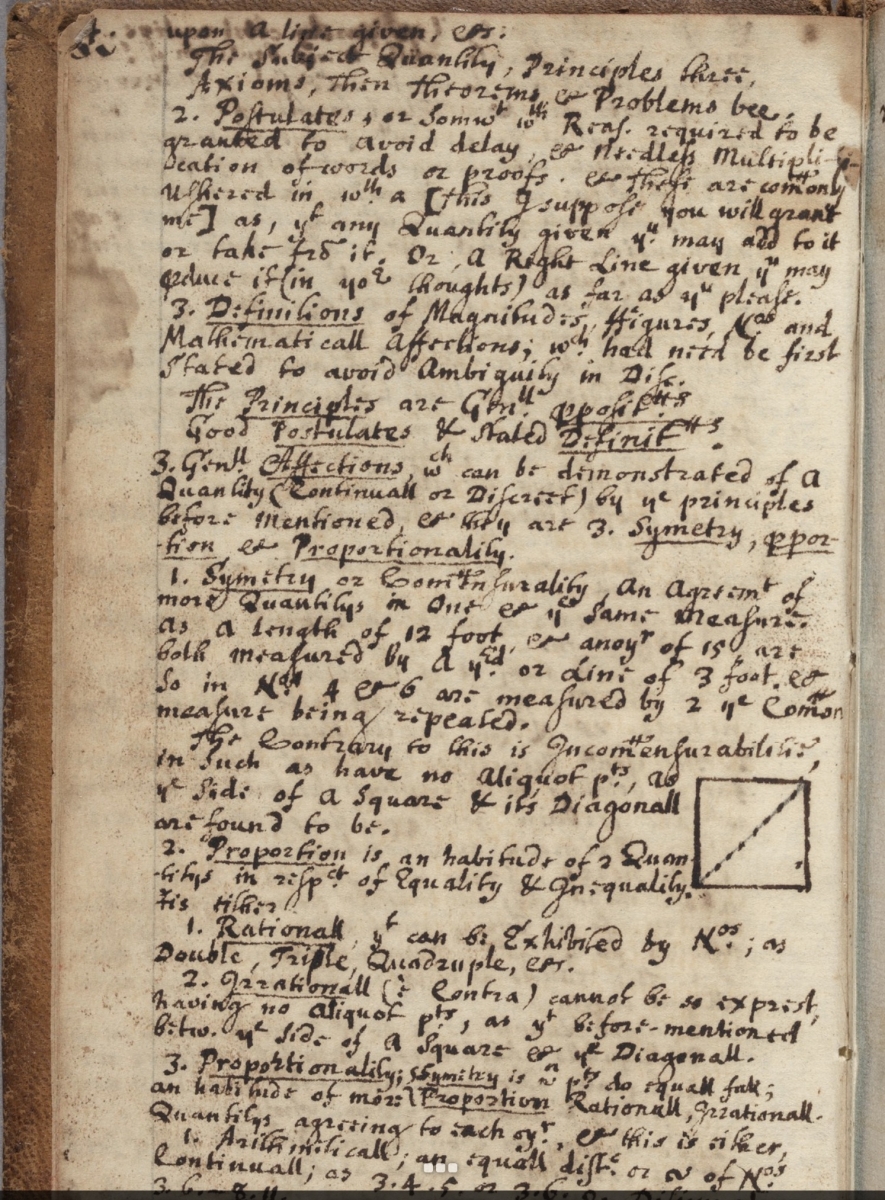 4.
upon A line given, &c:
The Subject Quantity, Principles three,
Axioms, Then Theorems, & Problems bee.
2. Postulates, or Somwt wth Reas. required to be
granted to avoid delay, & Needless Multipli-
cation of words or proofs. & These are com̄only
Ushered in wth a [this I suppose you will grant
me] as, yt any Quantity given yu may add to it
or take frō it. Or, A Right Line given yu may
produce it (in yor thoughts) as far as yu please.
3. Definitions of Magnitudes, ffigures, Nos and
Mathematicall Affections; wch had need be first
Stated to avoid Ambiguity in Disc.
The Principles are Genll pposittns
Good Postulates & Stated Definittns.
3. Genll Affections, wch can be demonstrated of A
Quantity (Continuall or Discreet) by ye principles
before Mentioned, & they are 3. Symetry, ppor-
-tion & Proportionality.
1. Symetry or Com̄ensurality, An Agreemt of
more Quantitys in One & ye Same Measure.
As A length of 12 foot, & anoyr of 15 are
both measured by A yrd. or Line of 3 foot. &
So in Nos 4 & 6 are measured by 2 ye Com̄on
measure being repeated.
The Contrary to this is Incom̄ensurabilitie,
in Such as have no Aliquot pts, as
ye Side of A Square & its Diagonall
are found to be.
2. Proportion is an habitude of 2 Quan-
-titys in respct of Equality & Inequality.
Tis either
1. Rationall, yt can be Exhibited by Nos; as
Double, Triple, Quadruple, &c.
2. Irrationall (è Contra) cannot be so exprest,
having no Aliquot pts, as yt before-mentioned
betw. ye Side of A Square & ye Diagonall.
3. Proportionality; Symetry is wn pts do equall fall;
an habitude of more Proportion Rationall, Irrationall.
Quantitys agreeing to each oyr, & this is either,
1. Arithmeticall; an equall distce or as of Nos
Continuall; as 3.4.5. or 3.6.